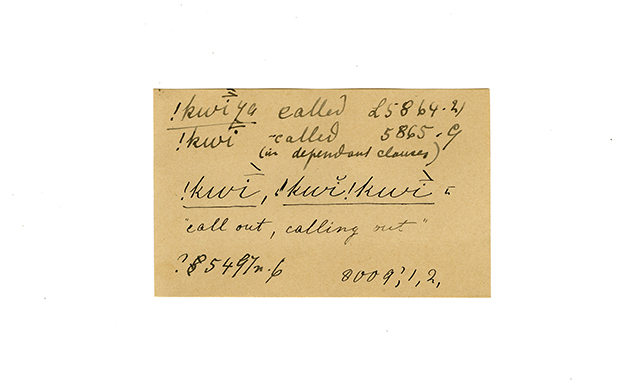 !kwiya called L5864.21
!kwi -called 5865.9
(in dependant clauses)
!kwi, !kwĭ!kwi
"call out, calling out"
? 5497n.6 8009?,1,2,